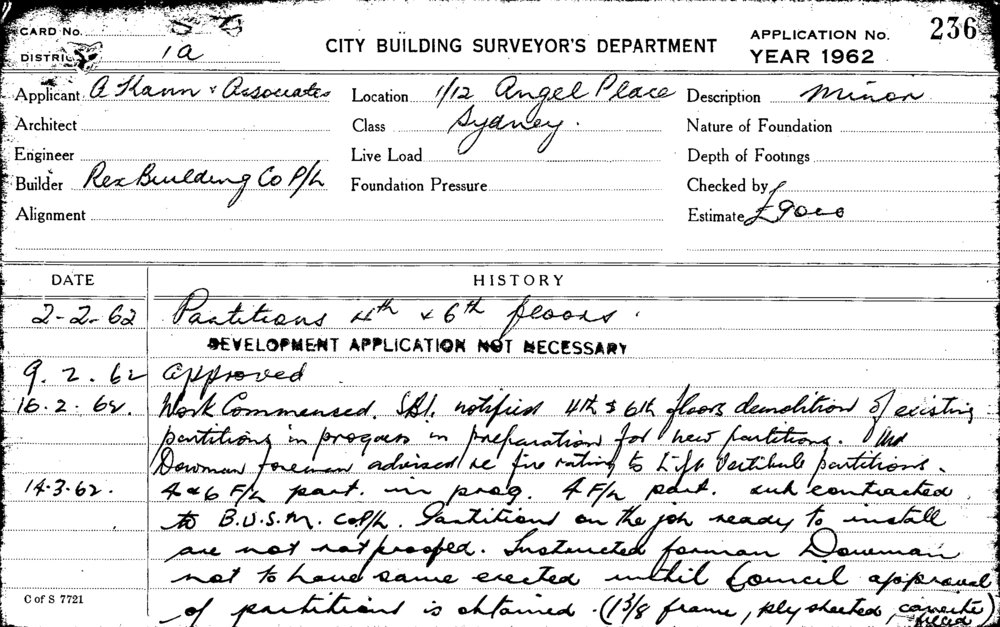 CARD No.
DISTRICT 1a
CITY BUILDING SURVEYOR'S DEPARTMENT
APPLICATION No. 236
YEAR 1962
Applicant A Kann & Associates
Location 1/12 Angel Place
Sydney.
Description Minor
Architect
Class
Nature of Foundation
Engineer
Live Load
Depth of Footings
Builder Rex Building Co P/L
Foundation Pressure
Checked by
Alignment
Estimate £9000
DATE HISTORY
2-2-62 Partitions 4th & 6th floors.
DEVELOPMENT APPLICATION NOT NECESSARY
9.2.62 Approved
16.2.62. Work Commensed. SBI. notified 4th & 6th floors demolition of existing
partitions in progress in preparation for new partitions. Mr
Dowman foreman advised re fire rating to Lift Vestibule partitions.
14.3.62. 4 & 6 F/L part. in prog. 4 F/L part. sub contracted
to B.U.S.M. Co P/L. Partitions on the job ready to install
are not rat proofed. Instructed forman Dowman
not to have same erected unthil Council approval
of partitions is obtained. (1 3/8 frame, ply sheeted, caneite
filled)
C of S 7721